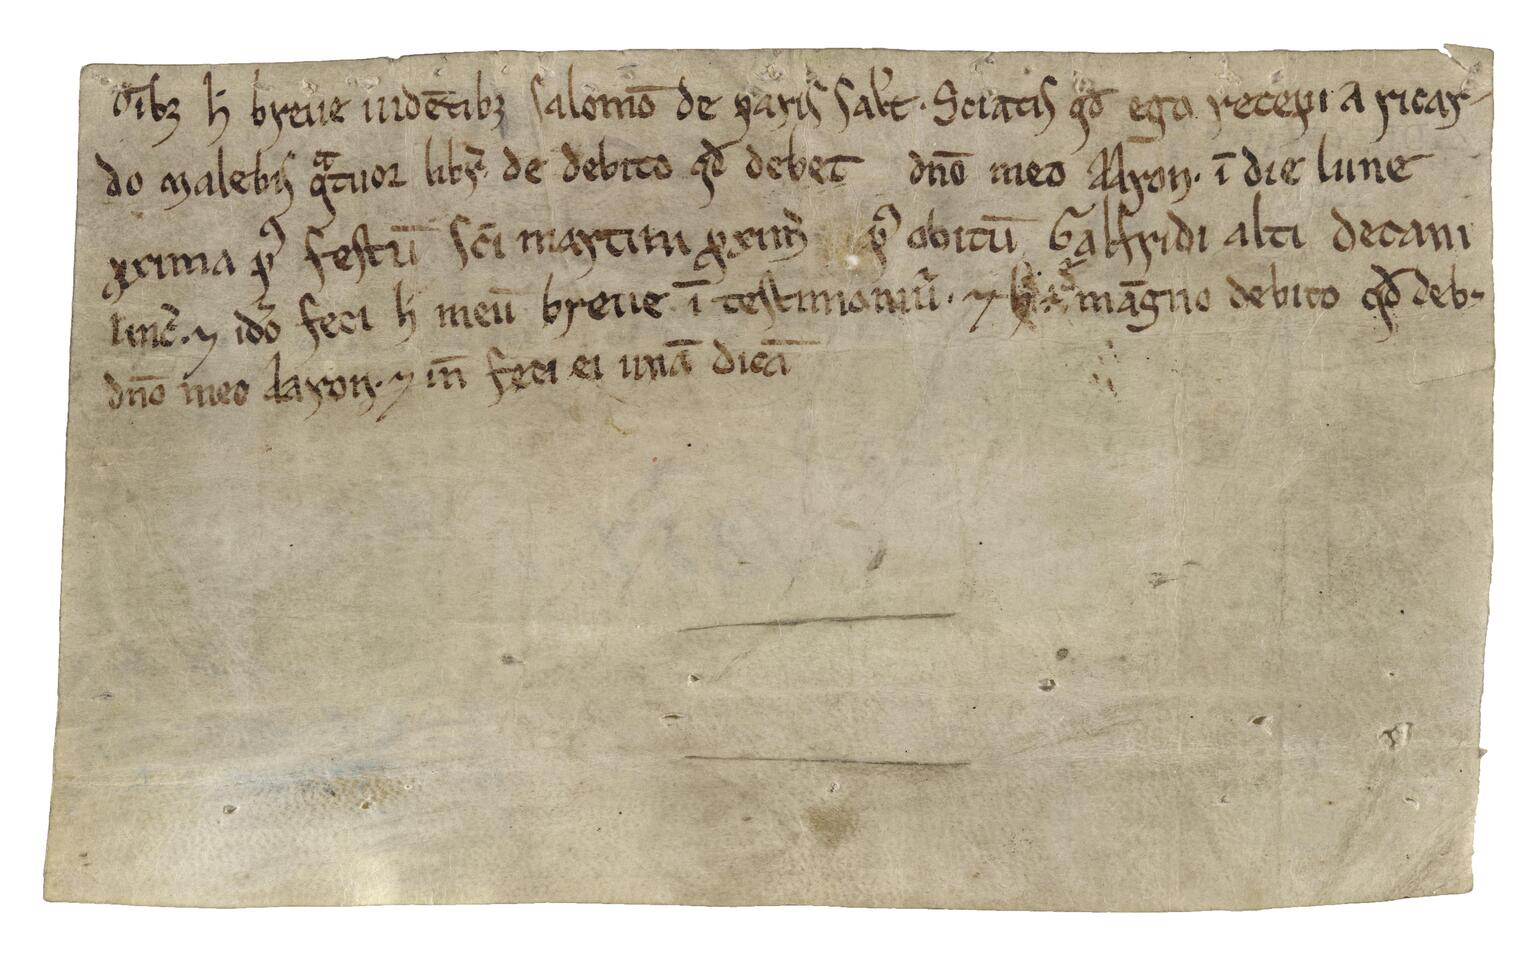 om̄ibꝫ ħ breue uidētibꝫ salomō de parisi saƚt. Sciatis qđ ego recepi a ricar-
do malebis qͣtuor libr̄ de debito qđ debet dn̄o meo Aaron. ī die lune
ꝓxima pꝰ festū Sc̄i martini ꝓxim̄ pꝰ obitū Galfridi alti decani
linc̄. ⁊ idō feci ħ meū breue ī testimoniū. ⁊ ħ de māgno debito qđ deb-
dn̄o meo Aaron. ⁊ in̄ feci ei unā dicā